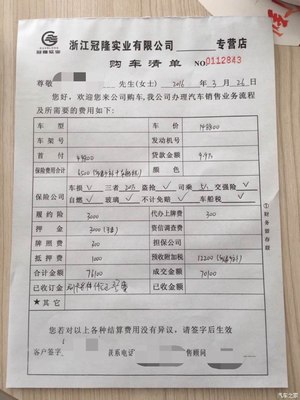 冠隆实业
浙江冠隆实业有限公司 专营店
购车清单 NO 0112843
尊敬 先生(女士) 2016 年 3 月 26 日
您好，欢迎您来公司购车，我公司办理汽车销售业务流程
及所需的费用如下：
车型 车价 148800
车架号 发动机号
首付 49800 贷款金额 9.9万
保险费用合计 6500 颜色
保险公司 车损 ✓ 三者 ✓ 盗抢 ✓ 司乘 ✓ 交强险 ✓
自燃 ✓ 玻璃 ✓ 不计免赔 ✓ 车船税 ✓
履约险 3000 代办上牌费 300
押金 3000 资信调查费
牌照费 担保公司
抵押费 1000 预收附加税 12200
合计金额 76100 成交金额 70100
已收订金 已收金额
★其它
①财务留存联
您若对以上各种结算费用没有异议，请签字后生效
客户签字 联系电话 售顾问
汽车之家